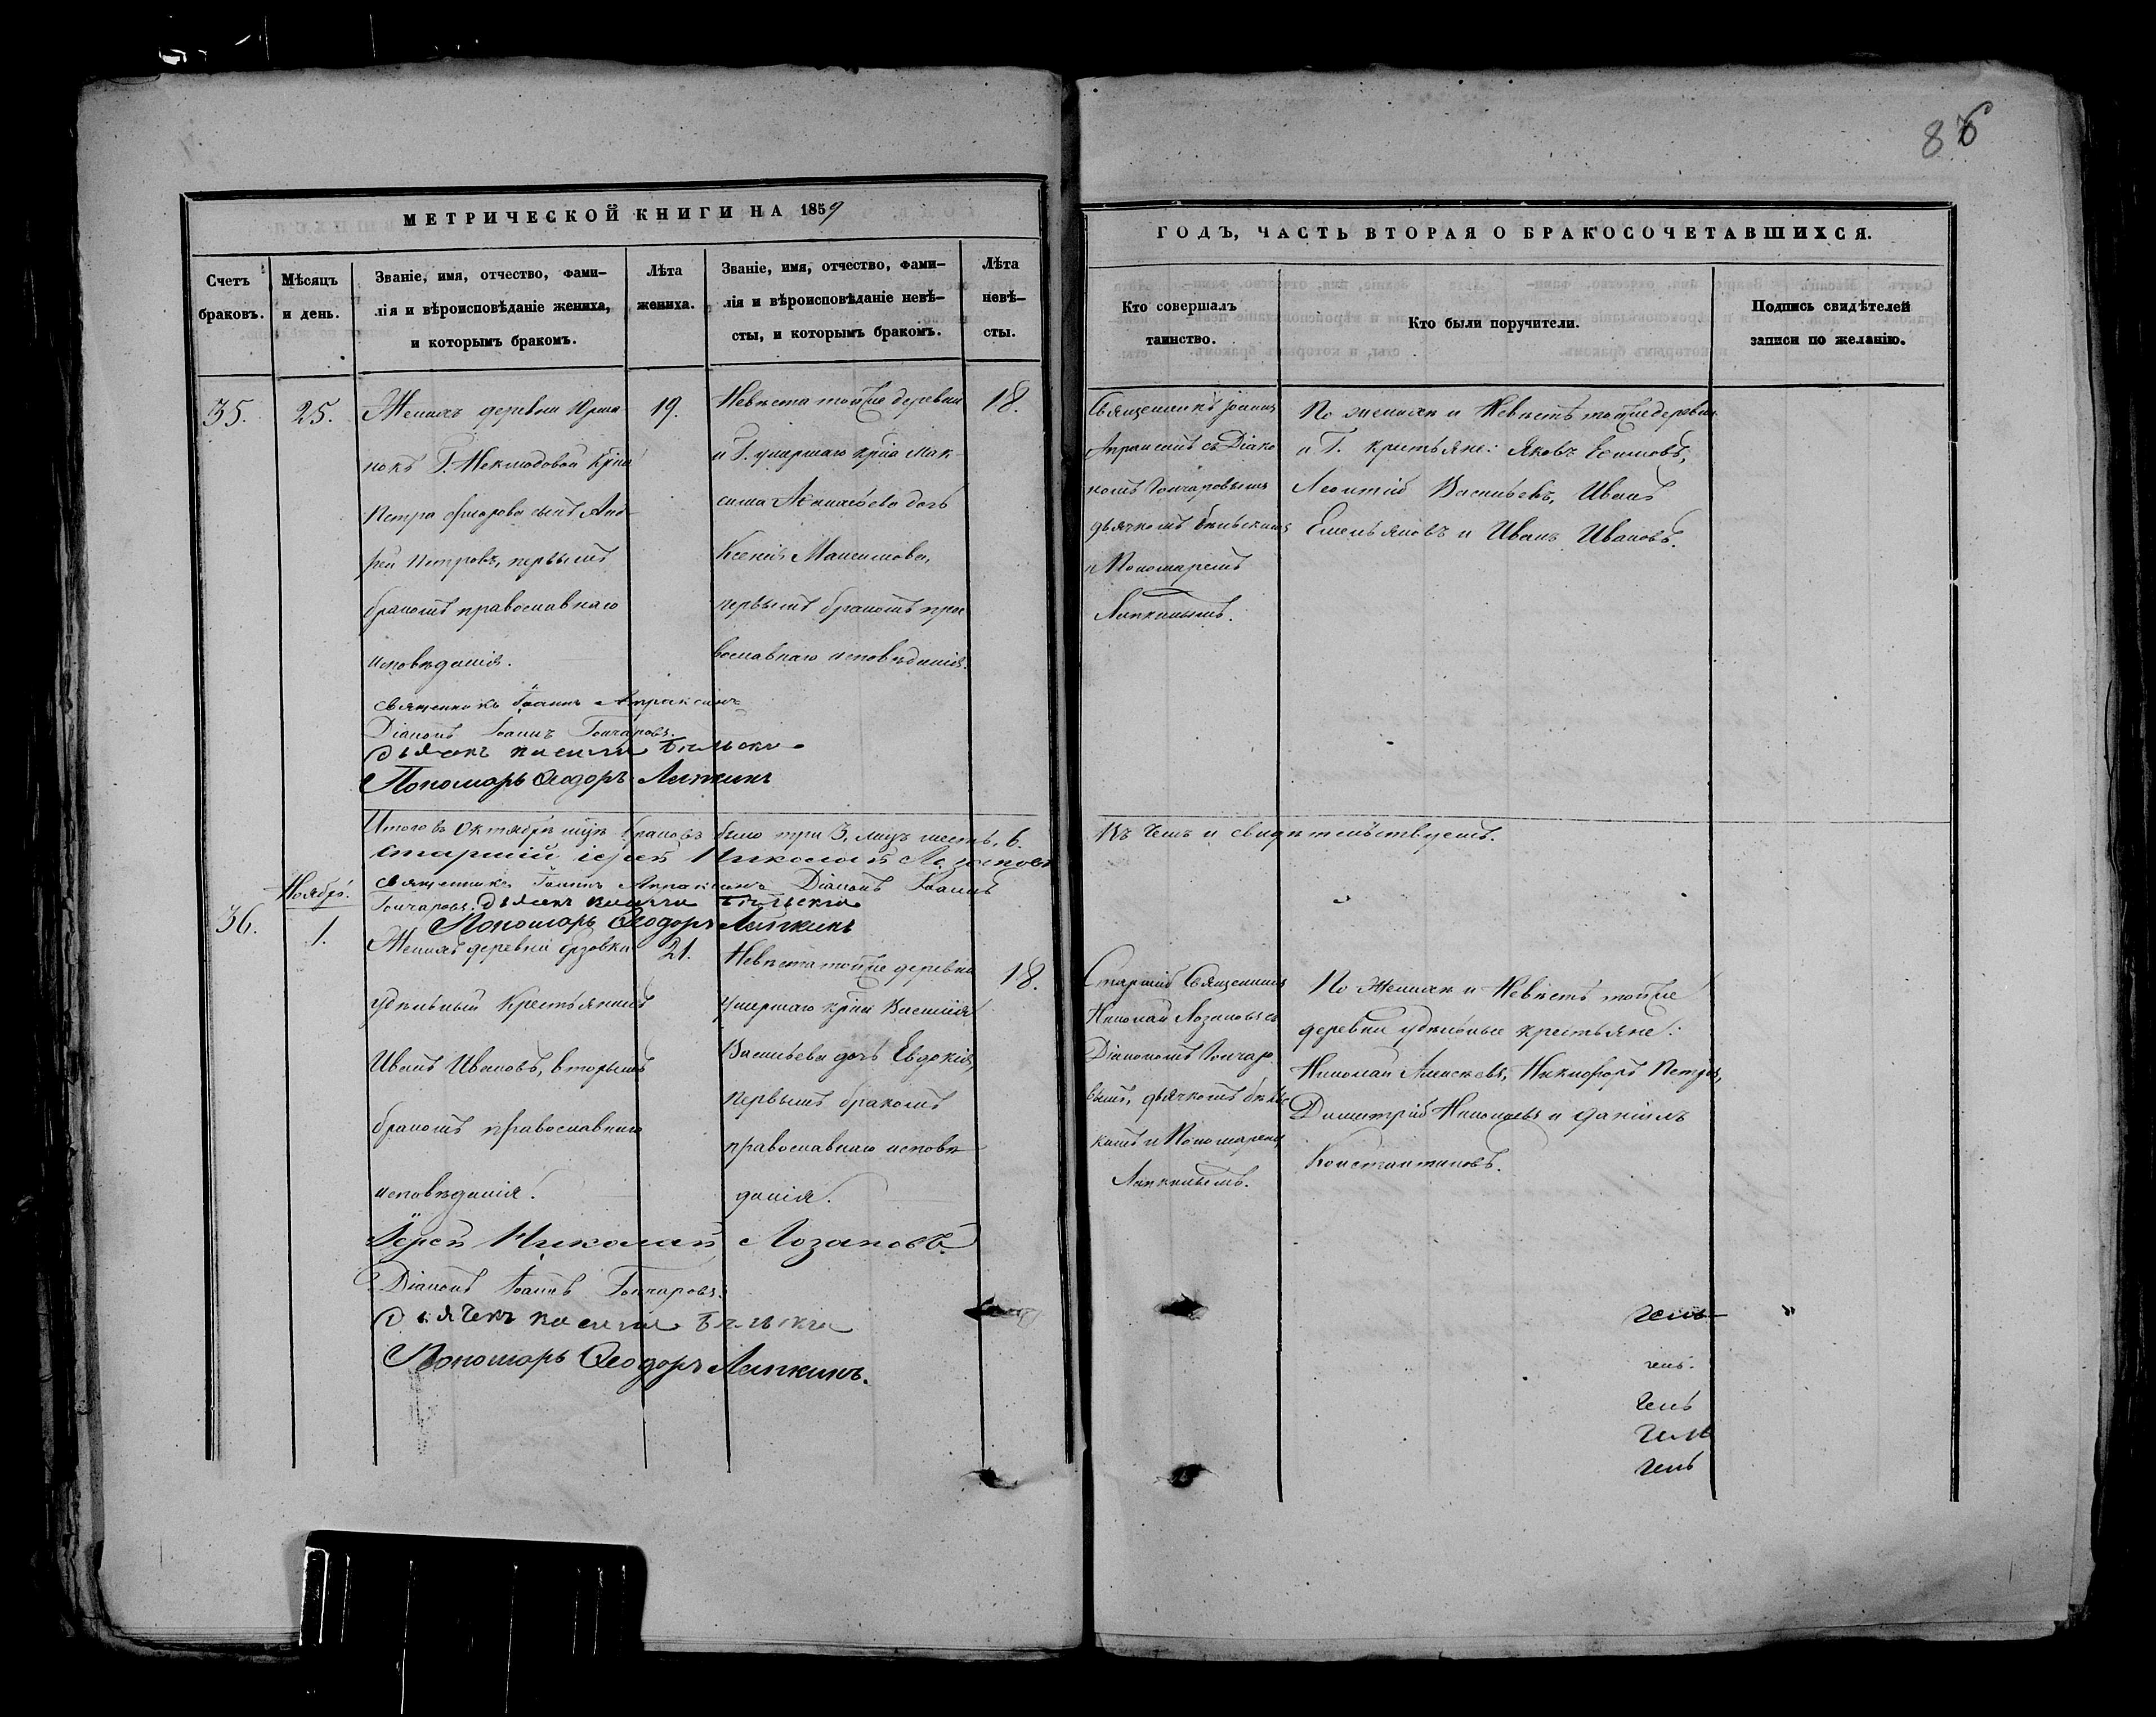 86
МЕТРИЧЕСКОЙ КНИГИ НА 1859
ГОДЪ, ЧАСТЬ ВТОРАЯ О БРАКОСОЧЕТАВШИХСЯ.
Счетъ
браковъ.
Мѣсяцъ
и день.
Званіе, имя, отчество, фами-
лія и вѣроисповѣданіе жениха,
и которымъ бракомъ.
Лѣта
жениха.
Званіе, имя, отчество, фами-
лія и вѣроисповѣданіе невѣ-
сты, и которымъ бракомъ.
Лѣта
невѣ-
сты.
Кто совершалъ
таинство.
Кто были поручители.
Подпись свидѣтелей
записи по желанію.
35.
25.
Женихъ деревни
Петра сынъ Анд
рей Петровъ, первымъ
бракомъ православнаго
исповѣданія.
19.
Невѣста тойже деревни
и Г. умершаго крна Мак
сима дочь
Ксенія Максимова,
первымъ бракомъ пра
вославнаго исповѣданія.
18.
Священникъ Іоаннъ
Апраксинъ съ Діако
номъ Гончаровымъ
дьячкомъ Бѣльскимъ
и Пономаремъ
Липкинымъ.
По женихѣ и Невѣстѣ тойже деревни
и Г. крестьяне: Яковъ
Леонтій Васильевъ, Иванъ
Емельяновъ и Иванъ Ивановъ.
Священникъ Іоаннъ Апраксинъ
Діаконъ Іоаннъ Гончаровъ.
Дьячекъ Василій Бѣльскій
Пономарь Ѳеодоръ Липкинъ
Итого въ Октябрѣ мцѣ браковъ было три 3, лицъ шесть, 6.
Старшій іерей Николай Лозановъ
Священникъ Іоаннъ Апраксинъ Діаконъ Іоаннъ
Гончаровъ. Дьячекъ Василій Бѣльскій
Пономарь Ѳеодоръ Липкинъ
Въ чемъ и свидѣтельствуемъ.
Ноябрь.
36.
1.
Женихъ деревни Ерзовки
удѣльный Крестьянинъ
Иванъ Ивановъ, вторымъ
бракомъ православнаго
исповѣданія.
21.
Невѣста тойже деревни
умершаго крна Василія
Васильева дочь Евдокія,
первымъ бракомъ
православнаго исповѣ
данія.
18.
Старшій Священникъ
Николай Лозановъ съ
Діакономъ Гончаро
вымъ, дьячкомъ Бѣльс
кимъ и Пономаремъ
Липкинымъ.
По Женихѣ и Невѣстѣ тойже
деревни удѣльные крестьяне:
Николай Алексѣевъ, Никифоръ Петровъ,
Димитрій Николаевъ и Даніилъ
Константиновъ.
Іерей Николай Лозановъ
Діаконъ Іоаннъ Гончаровъ.
Дьячекъ Василій Бѣльскій
Пономарь Ѳеодоръ Липкинъ.